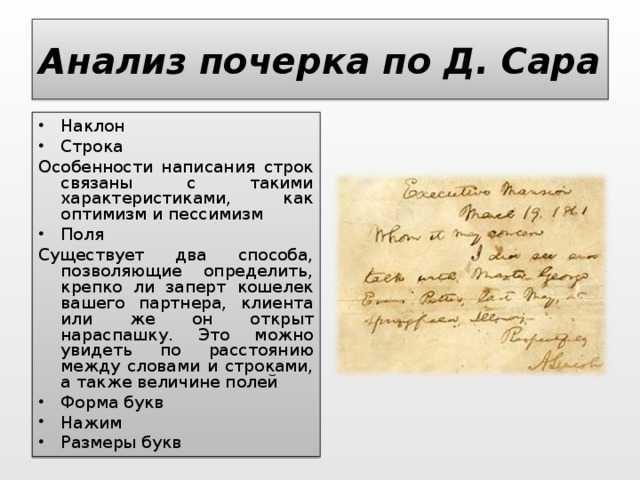 Анализ почерка по Д. Сара
• Наклон
• Строка
Особенности написания строк
связаны с такими
характеристиками, как
оптимизм и пессимизм
• Поля
Существует два способа,
позволяющие определить,
крепко ли заперт кошелек
вашего партнера, клиента
или же он открыт
нараспашку. Это можно
увидеть по расстоянию
между словами и строками,
а также величине полей
• Форма букв
• Нажим
• Размеры букв
Executive Mansion
March 19. 1861
Whom it may concern
I did see and
talk with Master George
Evans Patten, last May, at
Springfield, Illinois.
Respectfully
A Lincoln